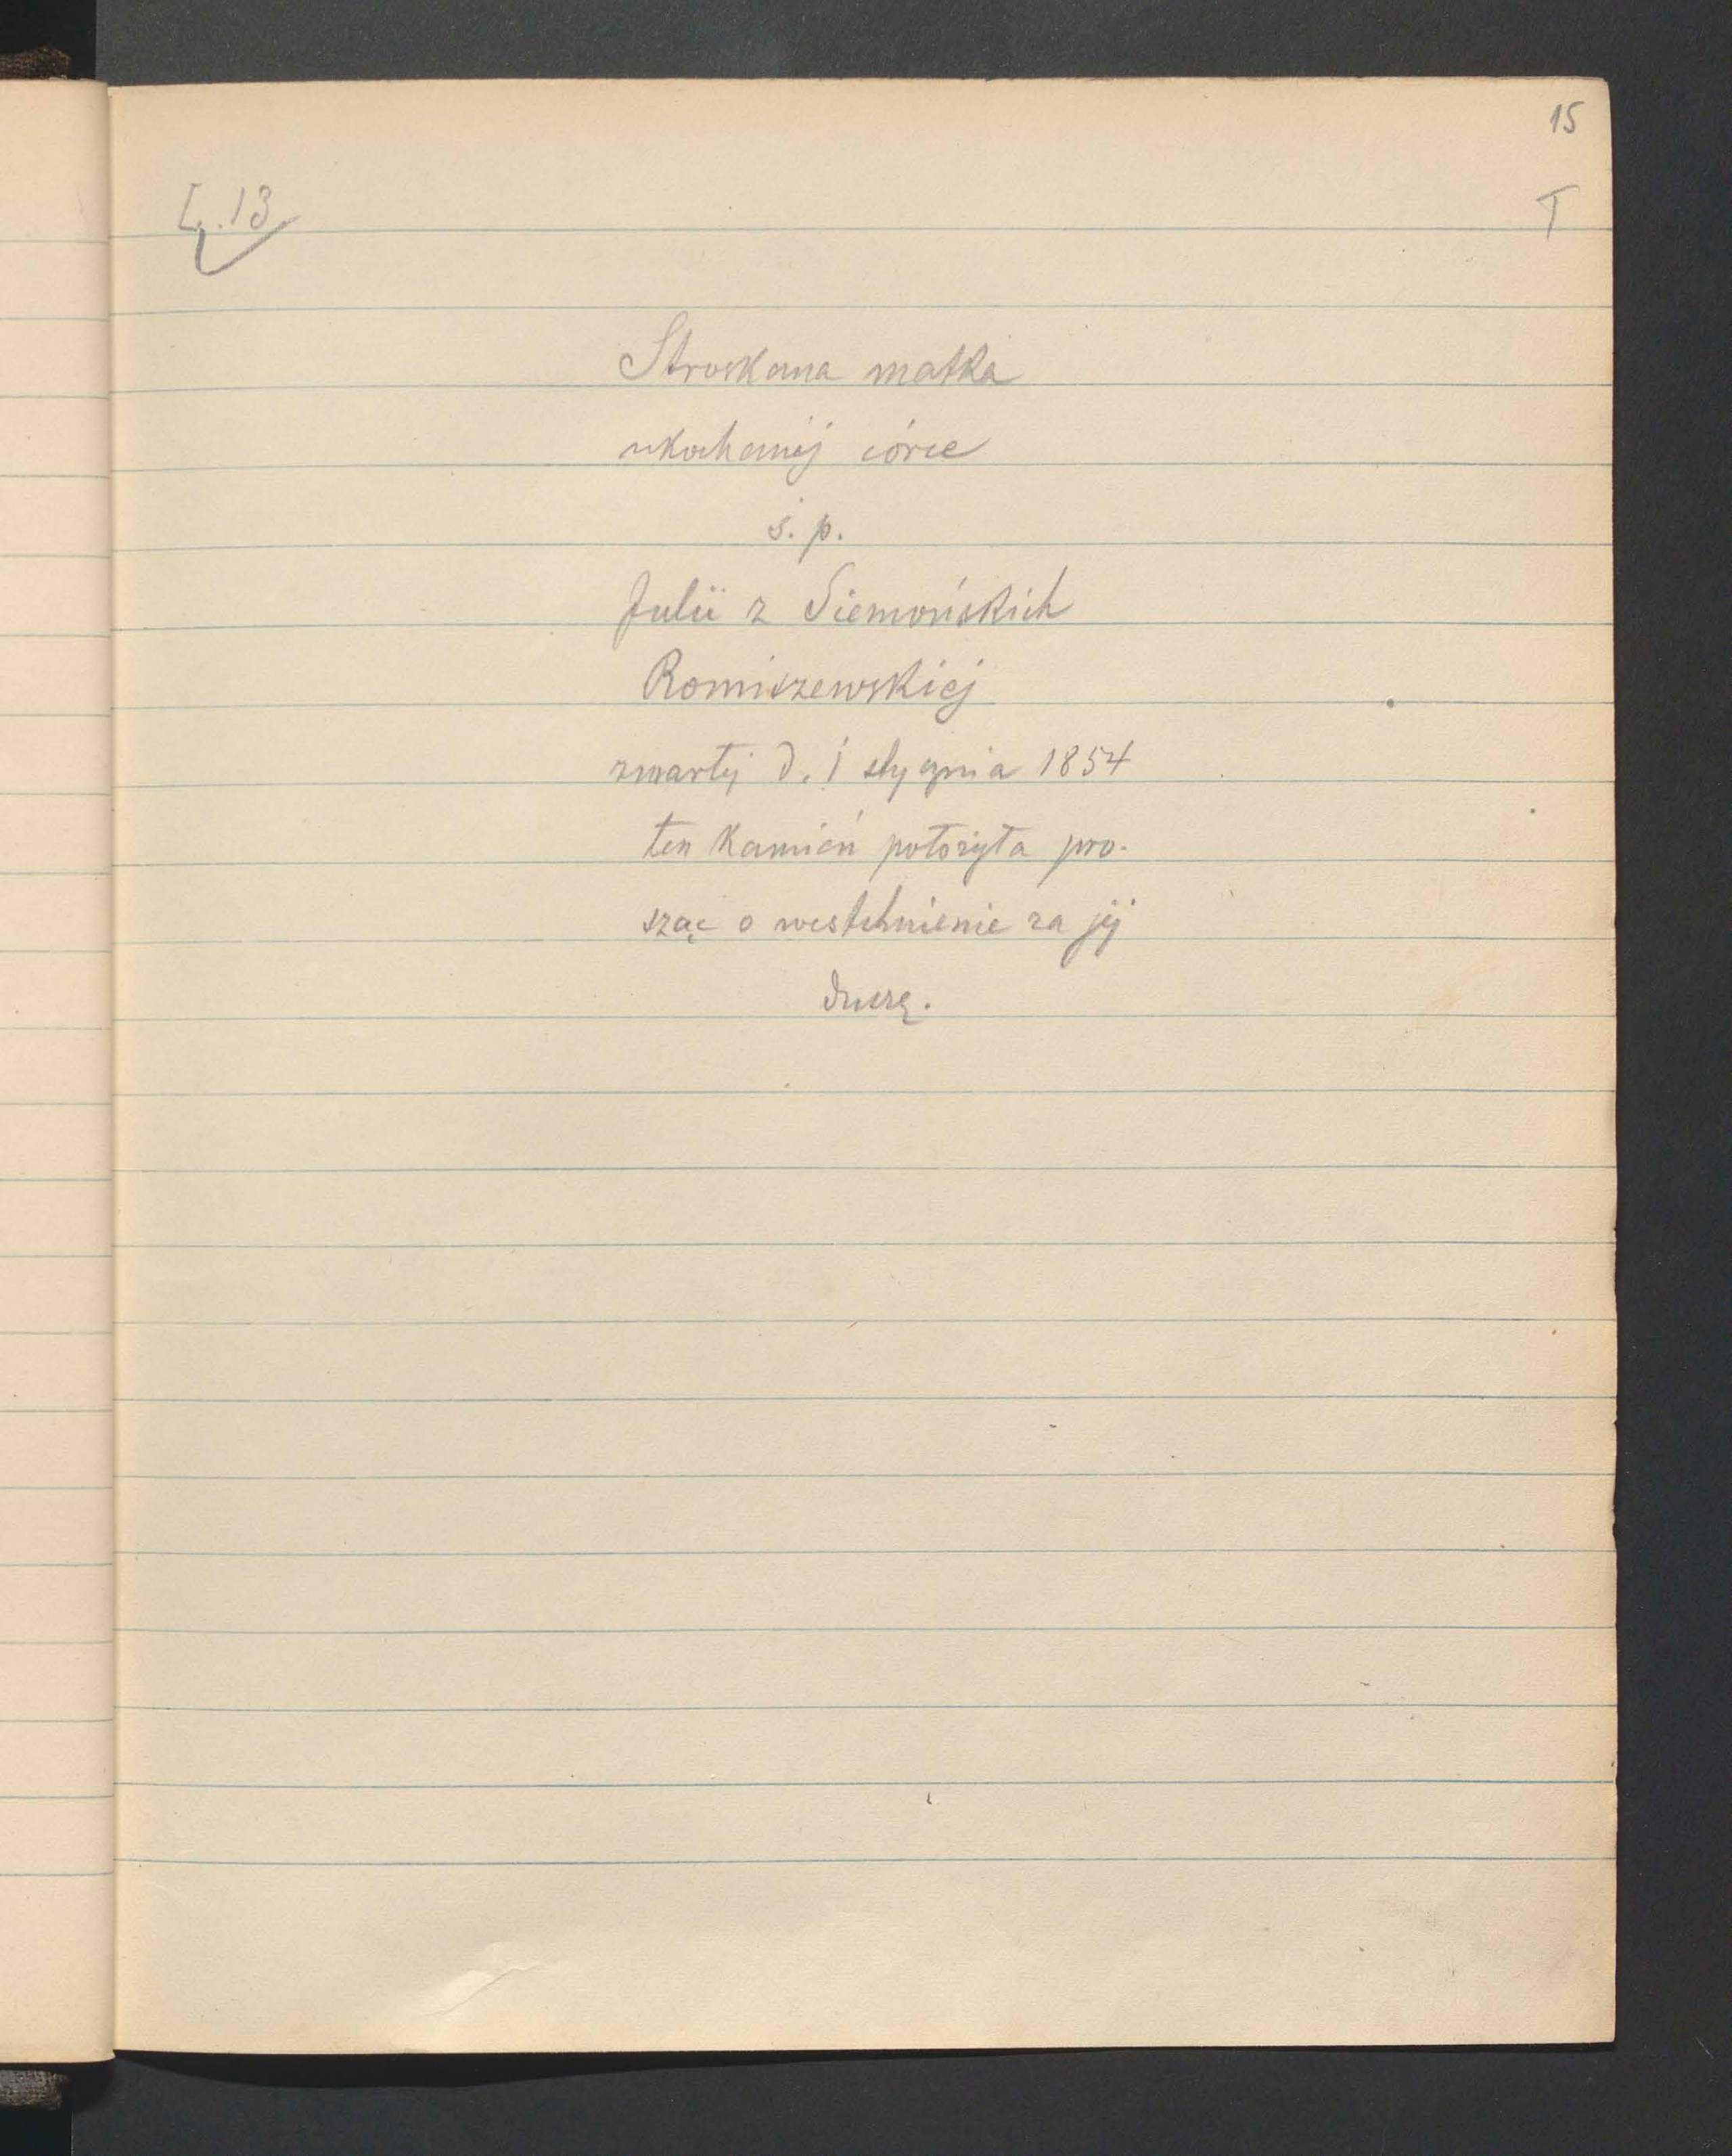 15
Ł. 13
T
Stroskana matka
ukochanéj córce
ś. p.
Julii z Siemońskich
Romiszewskiéj
zmarłéj d. 1 stycznia 1854
ten kamień położyła pro-
sząc o westchnienie za jéj
duszę.